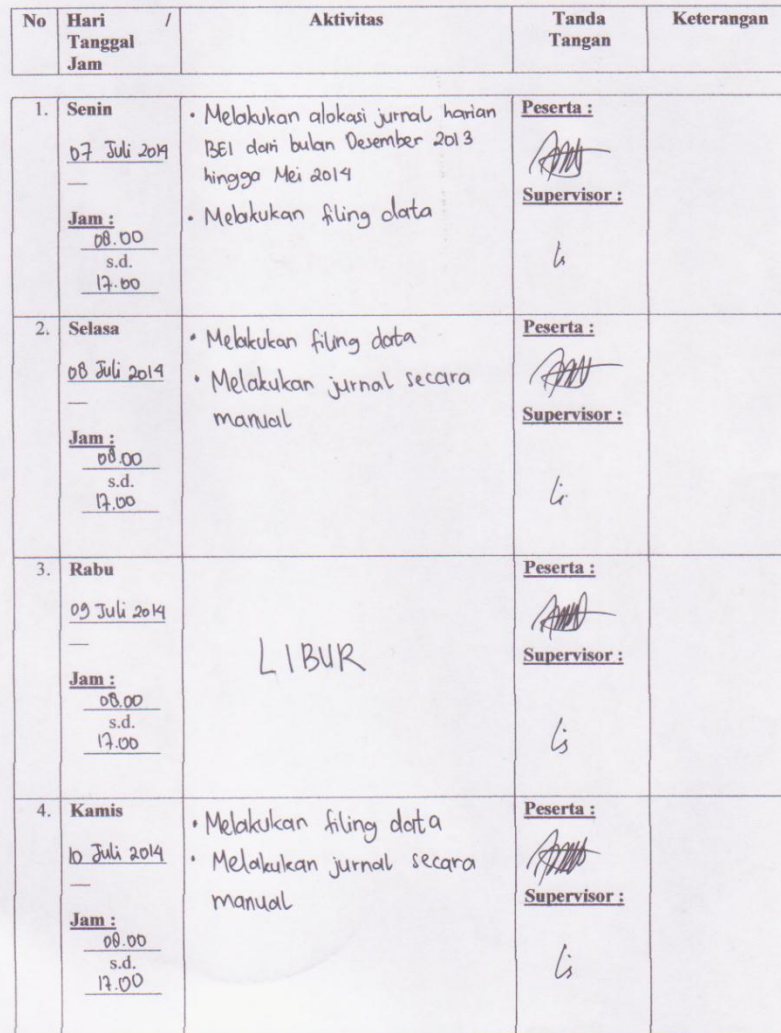 No Hari / Aktivitas Tanda Keterangan
Tanggal Tangan
Jam
1. Senin
07 Juli 2014
Jam :
08.00
s.d.
17.00
• Melakukan alokasi jurnal harian
BEI dari bulan Desember 2013
hingga Mei 2014
• Melakukan filing data
Peserta :
Supervisor :
2. Selasa
08 Juli 2014
Jam :
08.00
s.d.
17.00
• Melakukan filing data
• Melakukan jurnal secara
manual
Peserta :
Supervisor :
3. Rabu
09 Juli 2014
Jam :
08.00
s.d.
17.00
LIBUR
Peserta :
Supervisor :
4. Kamis
10 Juli 2014
Jam :
08.00
s.d.
17.00
• Melakukan filing data
• Melakukan jurnal secara
manual
Peserta :
Supervisor :